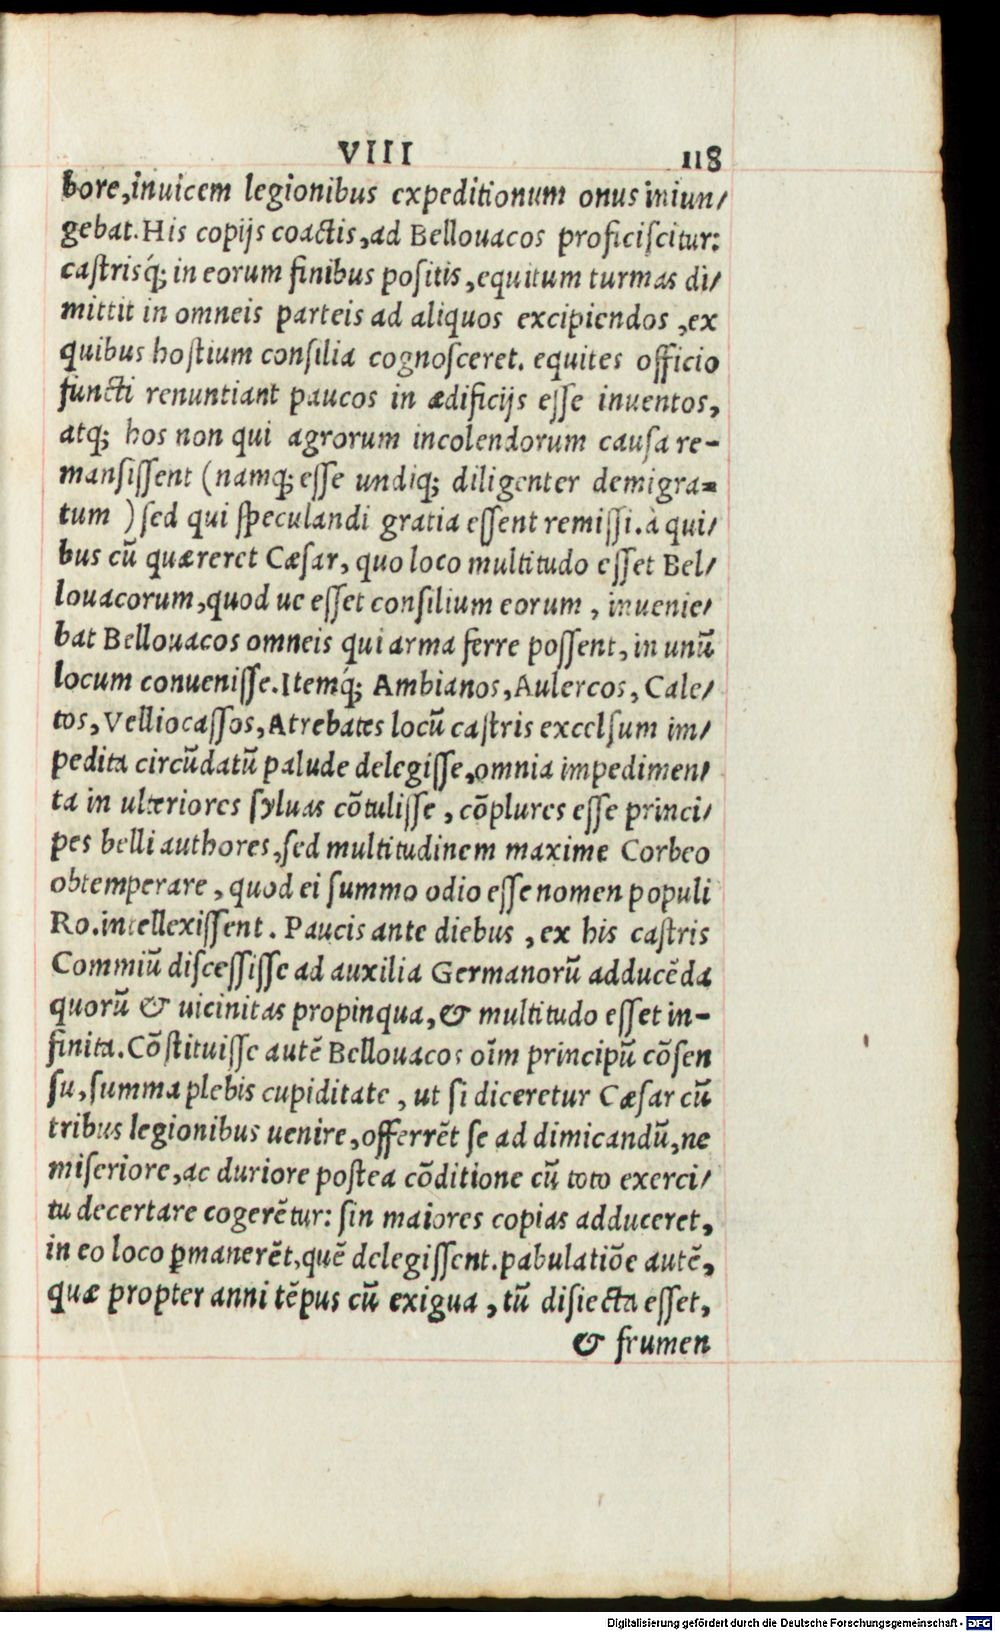 VIII 118
bore,inuicem legionibus expeditionum onus iniun/
gebat.His copijs coactis,ad Bellouacos proficiſcitur:
caſtrisq́; in eorum finibus poſitis,equitum turmas di/
mittit in omneis parteis ad aliquos excipiendos ,ex
quibus hoſtium conſilia cognoſceret. equites officio
functi renuntiant paucos in ædificijs eſſe inuentos,
atq; hos non qui agrorum incolendorum cauſa re-
manſiſſent (namq; eſſe undiq; diligenter demigra=
tum ) ſed qui ſpeculandi gratia eſſent remiſſi.à qui/
bus cũ quæreret Cæſar, quo loco multitudo eſſet Bel/
louacorum,quod ue eſſet conſilium eorum , inuenie/
bat Bellouacos omneis qui arma ferre poſſent, in unũ
locum conueniſſe.Itemq́; Ambianos,Aulercos, Cale/
tos,Velliocaſſos,Atrebates locũ caſtris excelſum im/
pedita circũdatũ palude delegiſſe,omnia impedimen/
ta in ulteriores ſyluas cõtuliſſe , cõplures eſſe princi/
pes belli authores,ſed multitudinem maxime Corbeo
obtemperare , quod ei ſummo odio eſſe nomen populi
Ro.intellexiſſent . Paucis ante diebus , ex his caſtris
Commiũ diſceſſiſſe ad auxilia Germanorũ adducẽda
quorũ & uicinitas propinqua,& multitudo eſſet in-
finita.Cõſtituiſſe autẽ Bellouacos oĩm principũ cõſen
ſu,ſumma plebis cupiditate , ut ſi diceretur Cæſar cũ
tribus legionibus uenire,offerrẽt ſe ad dimicandũ,ne
miſeriore,ac duriore poſtea cõditione cũ toto exerci/
tu decertare cogerẽtur: ſin maiores copias adduceret,
in eo loco ꝑmanerẽt,quẽ delegiſſent.pabulatiõe autẽ,
quæ propter anni tẽpus cũ exigua , tũ diſiecta eſſet,
& frumen
Digitalisierung gefördert durch die Deutsche Forschungsgemeinschaft - DFG